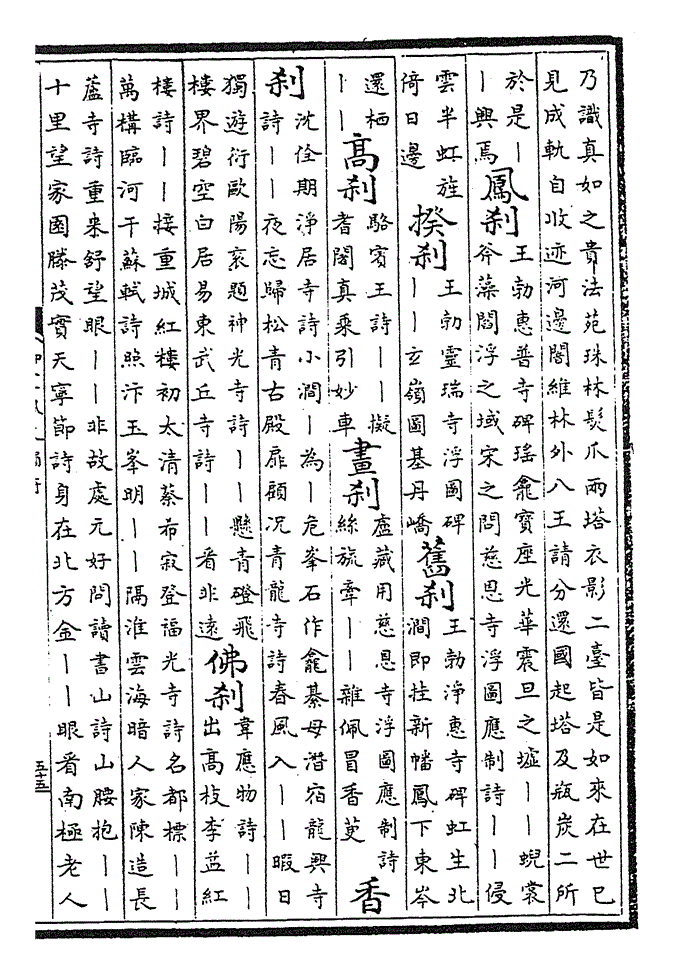 乃識真如之貴法苑珠林髮爪兩塔衣影二臺皆是如來在世已
見成軌自收迹河邊闍維林外八王請分還國起塔及瓶炭二所
於是丨
丨興焉
鳳刹
王勃惠普寺碑瑤龕寶座光華震旦之墟丨丨蜺裳
斧藻閻浮之域宋之問慈恩寺浮圖應制詩丨丨侵
雲半虹旌
倚日邊
揆刹
王勃靈瑞寺浮圖碑
丨丨玄嶺圖基丹嶠
舊刹
王勃淨惠寺碑虹生北
澗即挂新幡鳳下東岑
還栖
丨丨
高刹
駱賓王詩丨丨擬
耆闍真乘引妙車
畫刹
盧藏用慈恩寺浮圖應制詩
絲旒牽丨丨雜佩冒香萸
香
刹
沈佺期淨居寺詩小澗丨為丨危峯石作龕綦母潛宿龍興寺
詩丨丨夜忘歸松青古殿扉顧况青龍寺詩春風入丨丨暇日
獨遊衍歐陽衮題神光寺詩丨丨懸青磴飛
樓界碧空白居易東武丘寺詩丨丨看非遠
佛刹
韋應物詩丨丨
出高枝李益紅
樓詩丨丨接重城紅樓初太清蔡希寂登福光寺詩名都標丨丨
萬構臨河干蘇軾詩照汴玉峯明丨丨隔淮雲海暗人家陳造長
蘆寺詩重來舒望眼丨丨非故處元好問讀書山詩山腰抱丨丨
十里望家園滕茂實天寧節詩身在北方金丨丨眼看南極老人